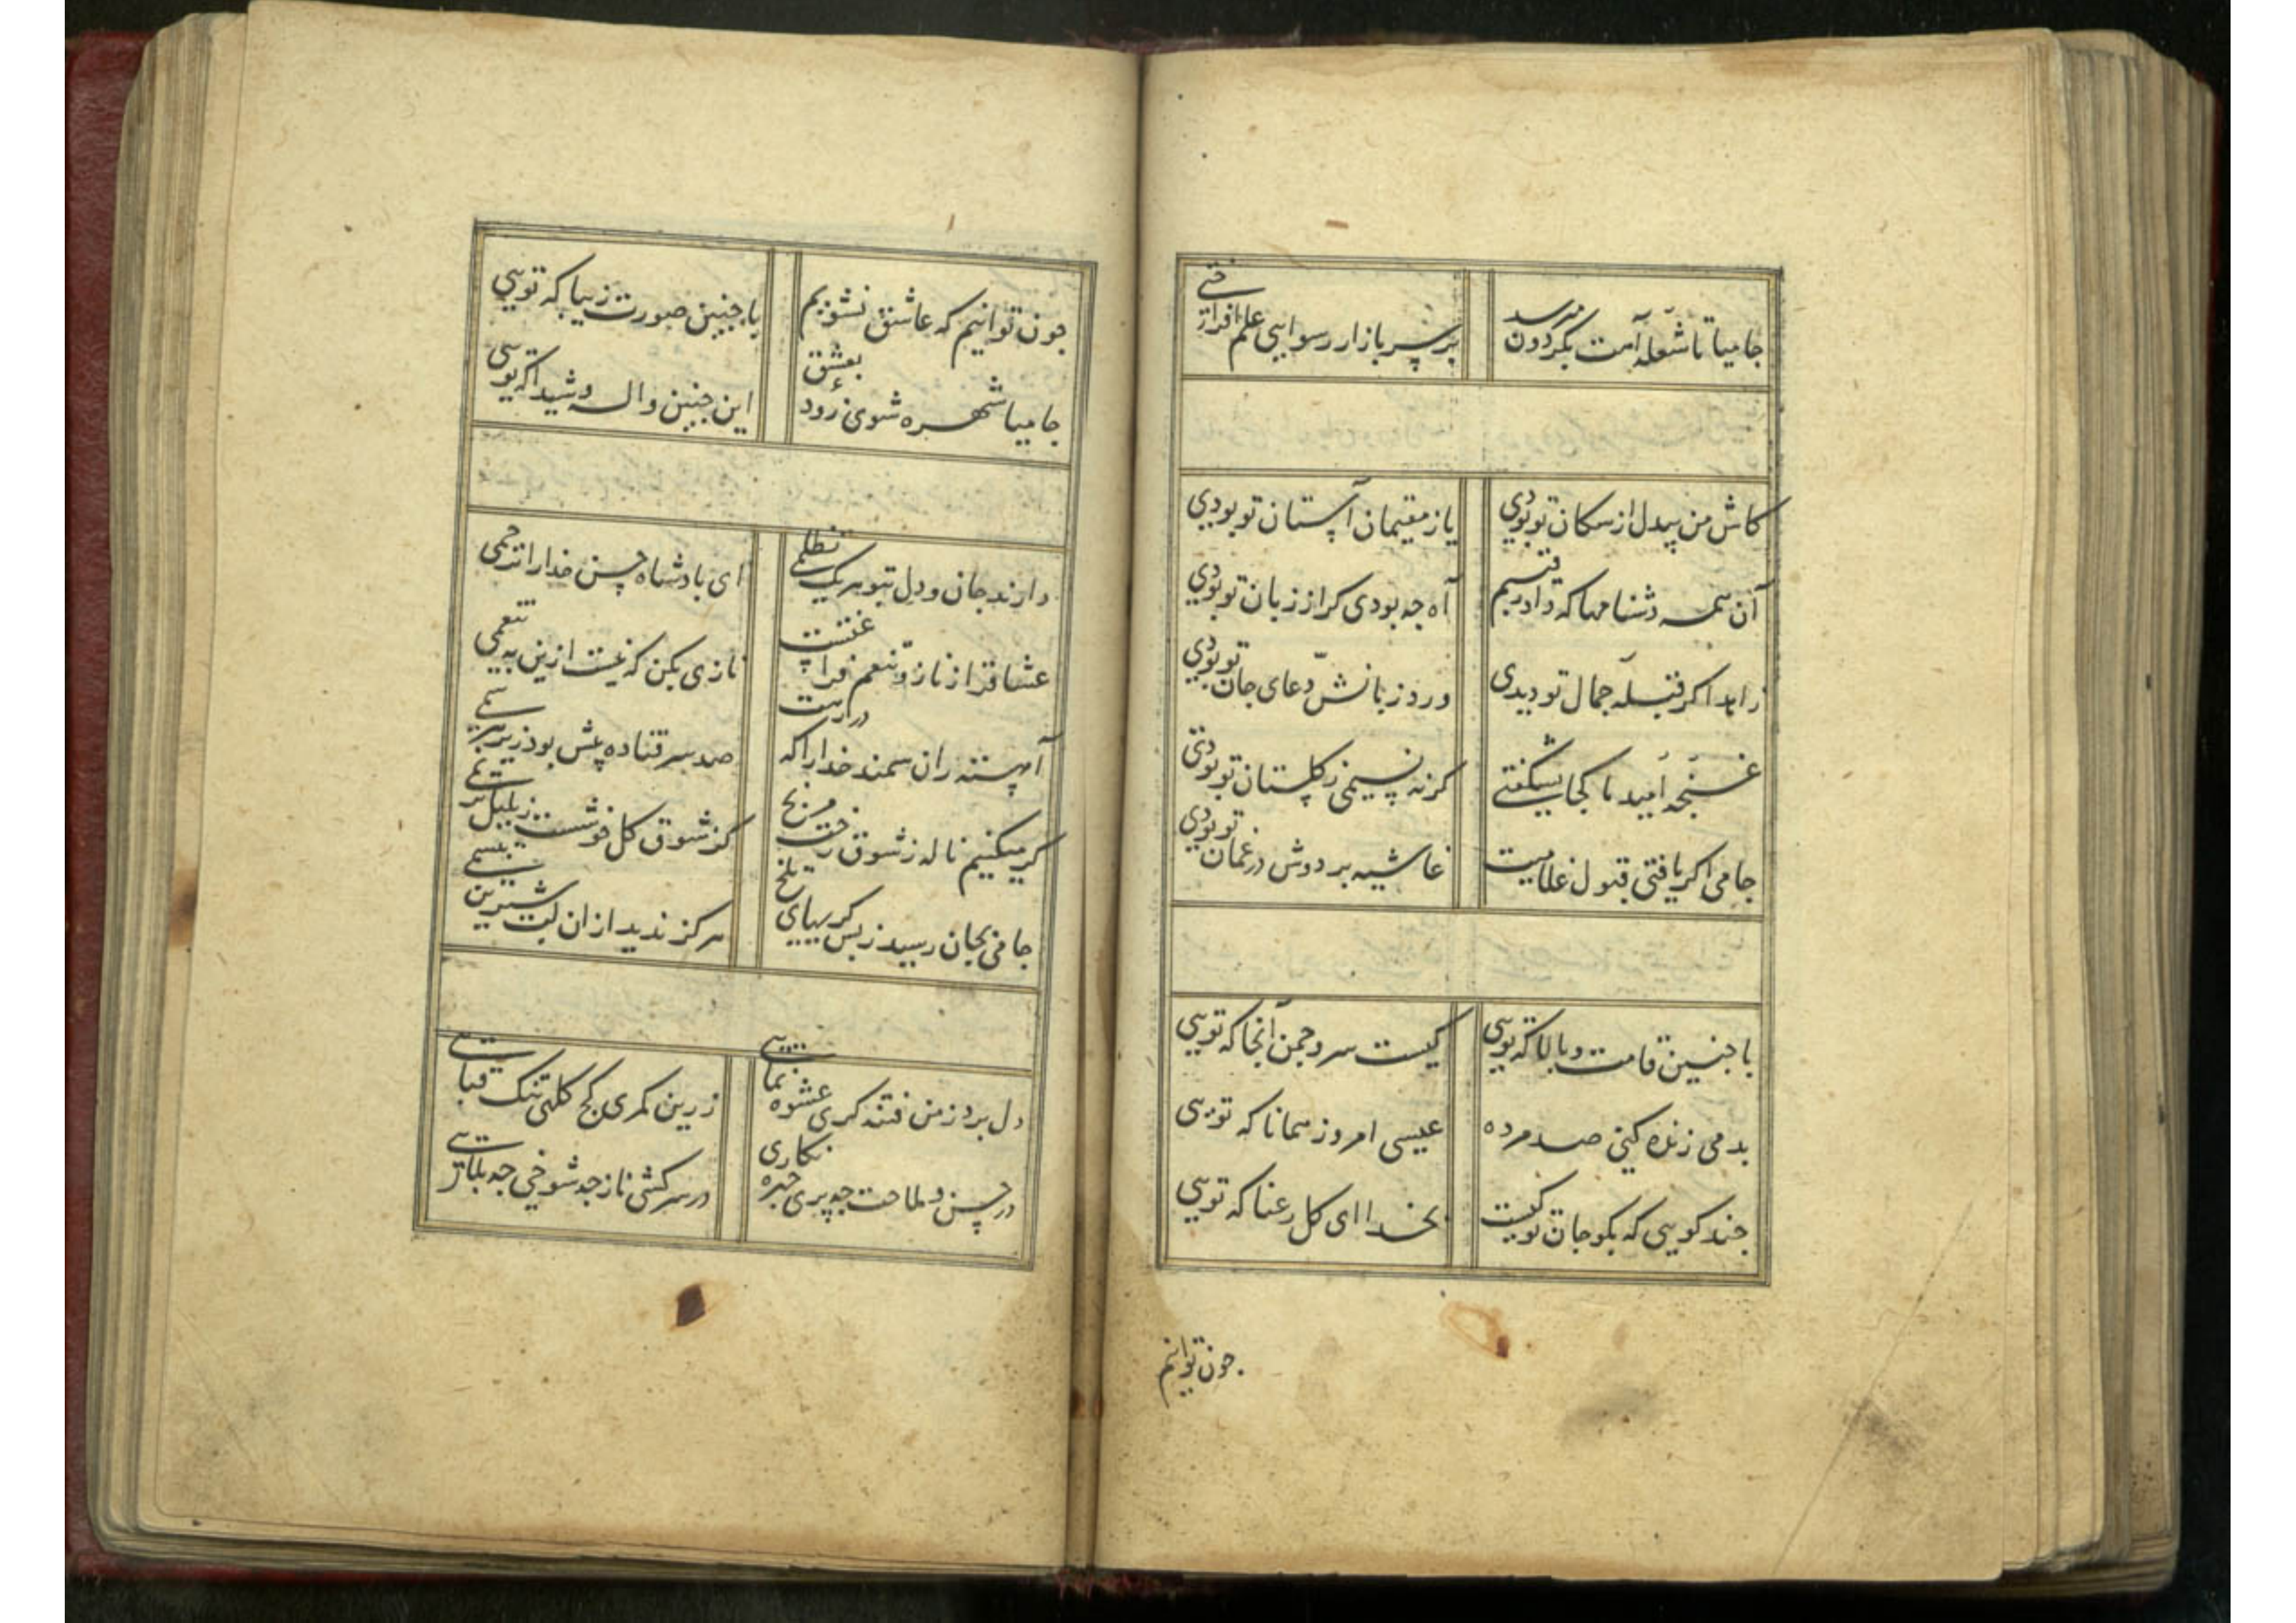 جامیا تا شعله آهت بگردون میرسد بر سر بازار رسوایی علم افراختی
کاش من بیدل از سکان تو بودی یا ز مقیمان آستان تو بودی
آن همه دشنامها که داد رقیبم آه چه بودی کر از زبان تو بودی
زاهد اکر قبله جمال تو دیدی ورد زبانش دعای جان تو بودی
غنچه امید ما کجا بشکفتی کر نه نسیمی ز کلستان تو بودی
جامی اکر یافتی قبول غلامیت غاشیه بر دوش در عنان تو بودی
با چنین قامت و بالا که تویی کیست سرو چمن آنجا که تویی
بدمی زنده کنی صد مرده عیسی امروز همانا که تویی
چند کویی که بکو جان تو کیست بخدا ای کل رعنا که تویی
چون توانیم
چون توانیم که عاشق نشویم با چنین صورت زیبا که تویی
جامیا شهره شوی زود بعشق این چنین واله و شیدا که تویی
دارند جان و دل بتو هر یک تظلمی ای پادشاه حسن خدا را ترحمی
عشاق را ز ناز و تنعم فراغتست نازی بکن که نیست ازین به تنعمی
آهسته ران سمند خدا را که در رهت صد سر فتاده پیش بود زیر هر سمی
کر میکنیم ناله ز شوق رخت مرنج کز شوق کل خوشست ز بلبل ترنمی
جامی بجان رسید ز بس کریهای تلخ هرکز ندید از ان لب شیرین تبسمی
دل برد ز من فتنه کری عشوه نمایی زرین کمری کج کلهی تنک قبایی
در حسن و ملاحت چه پری چهره نکاری در سرکشی و ناز چه شوخی چه بلایی